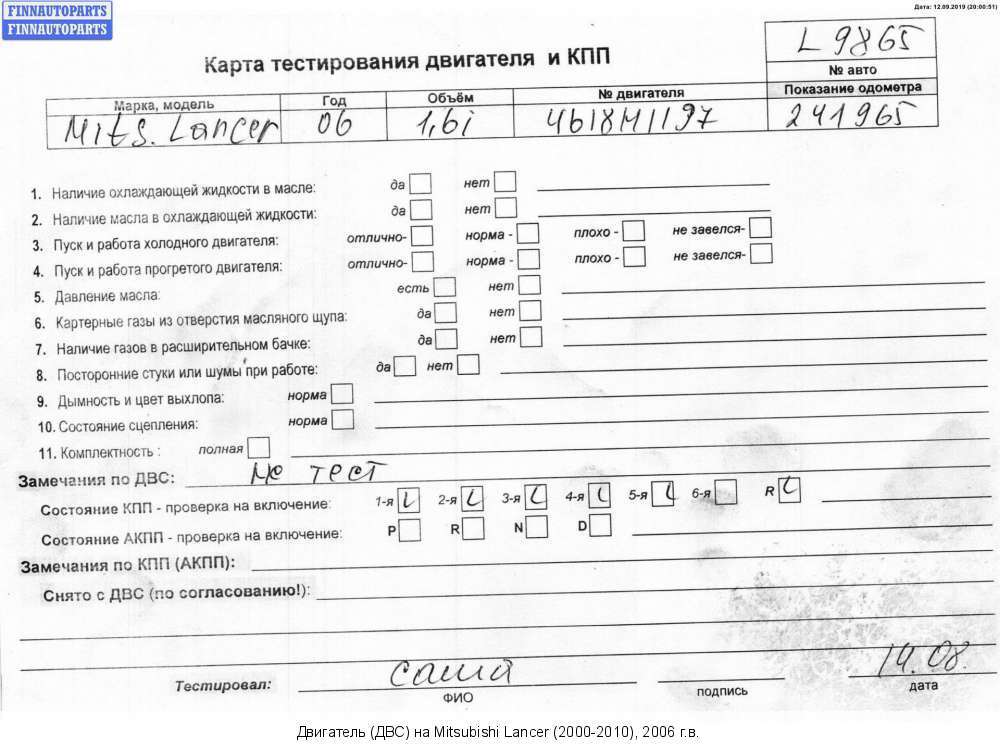 FINNAUTOPARTS
FINNAUTOPARTS
Дата: 12.09.2019 (20:00:51)
Карта тестирования двигателя и КПП
L 9865
№ авто
Марка, модель Год Объём № двигателя Показание одометра
Mits. Lancer 06 1,6i 4b18M1197 241965
1. Наличие охлаждающей жидкости в масле: да нет
2. Наличие масла в охлаждающей жидкости: да нет
3. Пуск и работа холодного двигателя: отлично- норма - плохо - не завелся-
4. Пуск и работа прогретого двигателя: отлично- норма - плохо - не завелся-
5. Давление масла: есть нет
6. Картерные газы из отверстия масляного щупа: да нет
7. Наличие газов в расширительном бачке: да нет
8. Посторонние стуки или шумы при работе: да нет
9. Дымность и цвет выхлопа: норма
10. Состояние сцепления: норма
11. Комплектность : полная
Замечания по ДВС: не тест
Состояние КПП - проверка на включение: 1-я 2-я 3-я 4-я 5-я 6-я R
Состояние АКПП - проверка на включение: P R N D
Замечания по КПП (АКПП):
Снято с ДВС (по согласованию!):
Тестировал: саша 14.08.
ФИО подпись дата
Двигатель (ДВС) на Mitsubishi Lancer (2000-2010), 2006 г.в.